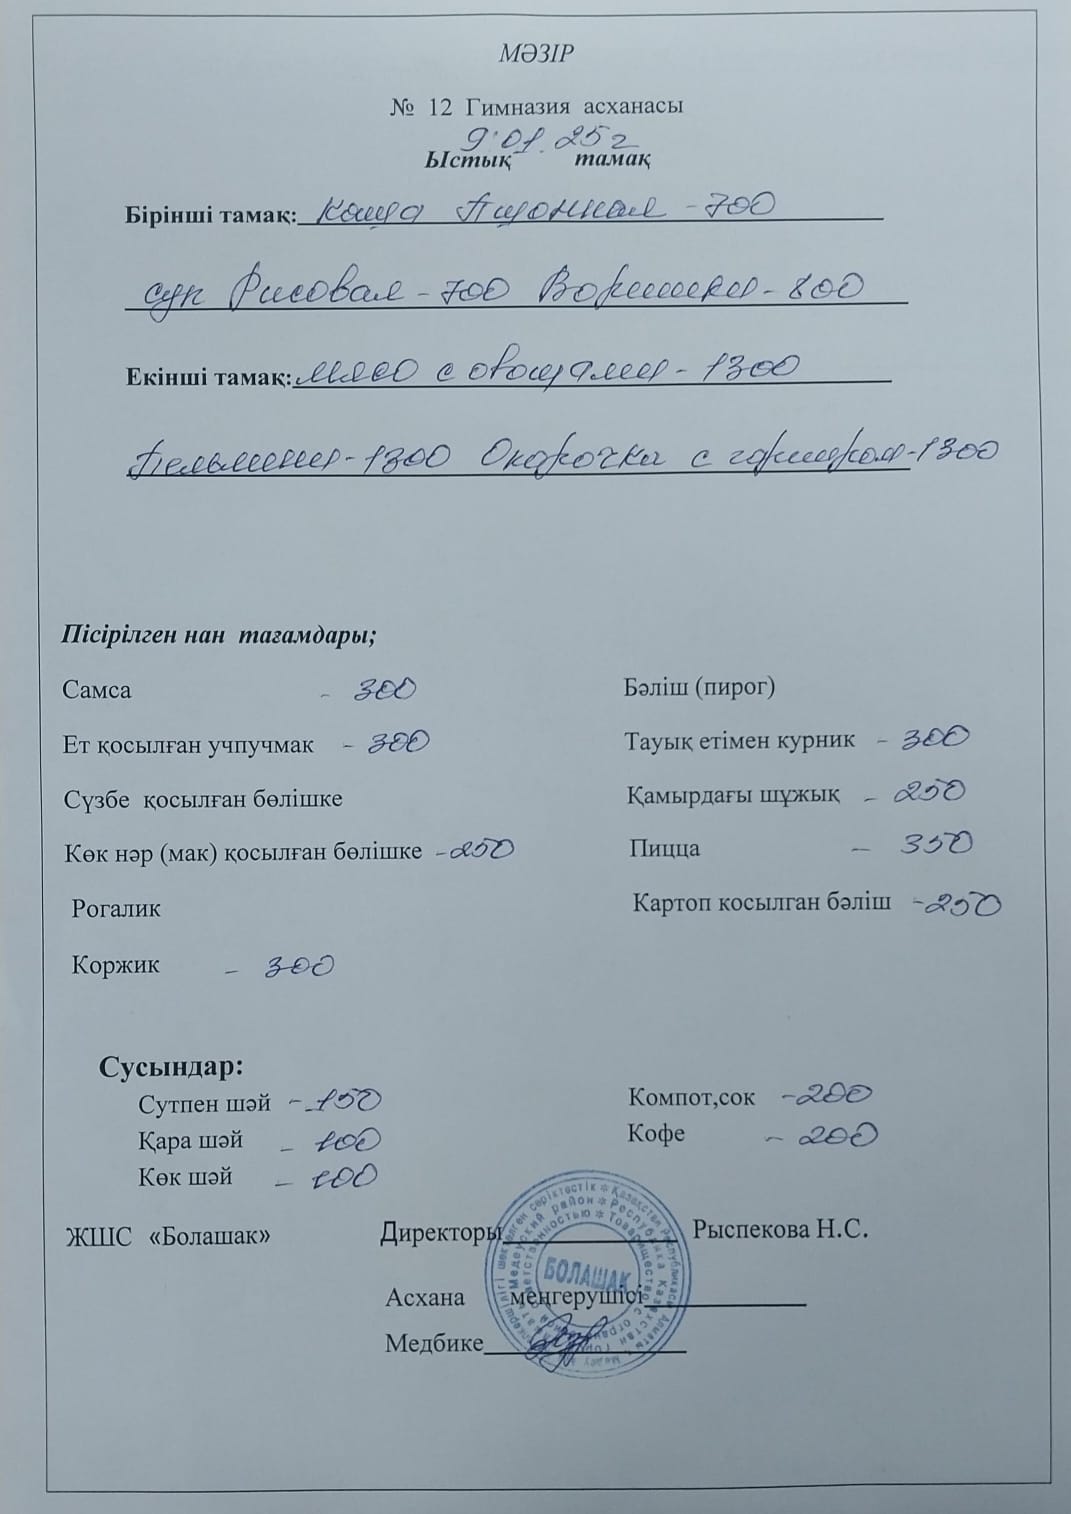 МӘЗІР
№ 12 Гимназия асханасы
9.01.25г
Ыстық тамақ
Бірінші тамақ: Каша Пшонная - 700
суп Рисовая - 700 Вареники - 800
Екінші тамақ: мясо с овощами - 1300
Пельмени - 1300 Окорочка с гарниром - 1300
Пісірілген нан тағамдары;
Самса - 300 Бәліш (пирог)
Ет қосылған учпучмак - 300 Тауық етімен курник - 300
Сүзбе қосылған бөлішке Қамырдағы шұжық - 250
Көк нәр (мак) қосылған бөлішке - 250 Пицца - 350
Рогалик Картоп косылган бәліш - 250
Коржик - 300
Сусындар:
Сутпен шәй - 150 Компот,сок - 200
Қара шәй - 100 Кофе - 200
Көк шәй - 100
ЖШС «Болашак» Директоры Рыспекова Н.С.
Асхана меңгерушісі
Медбике
БОЛАШАК